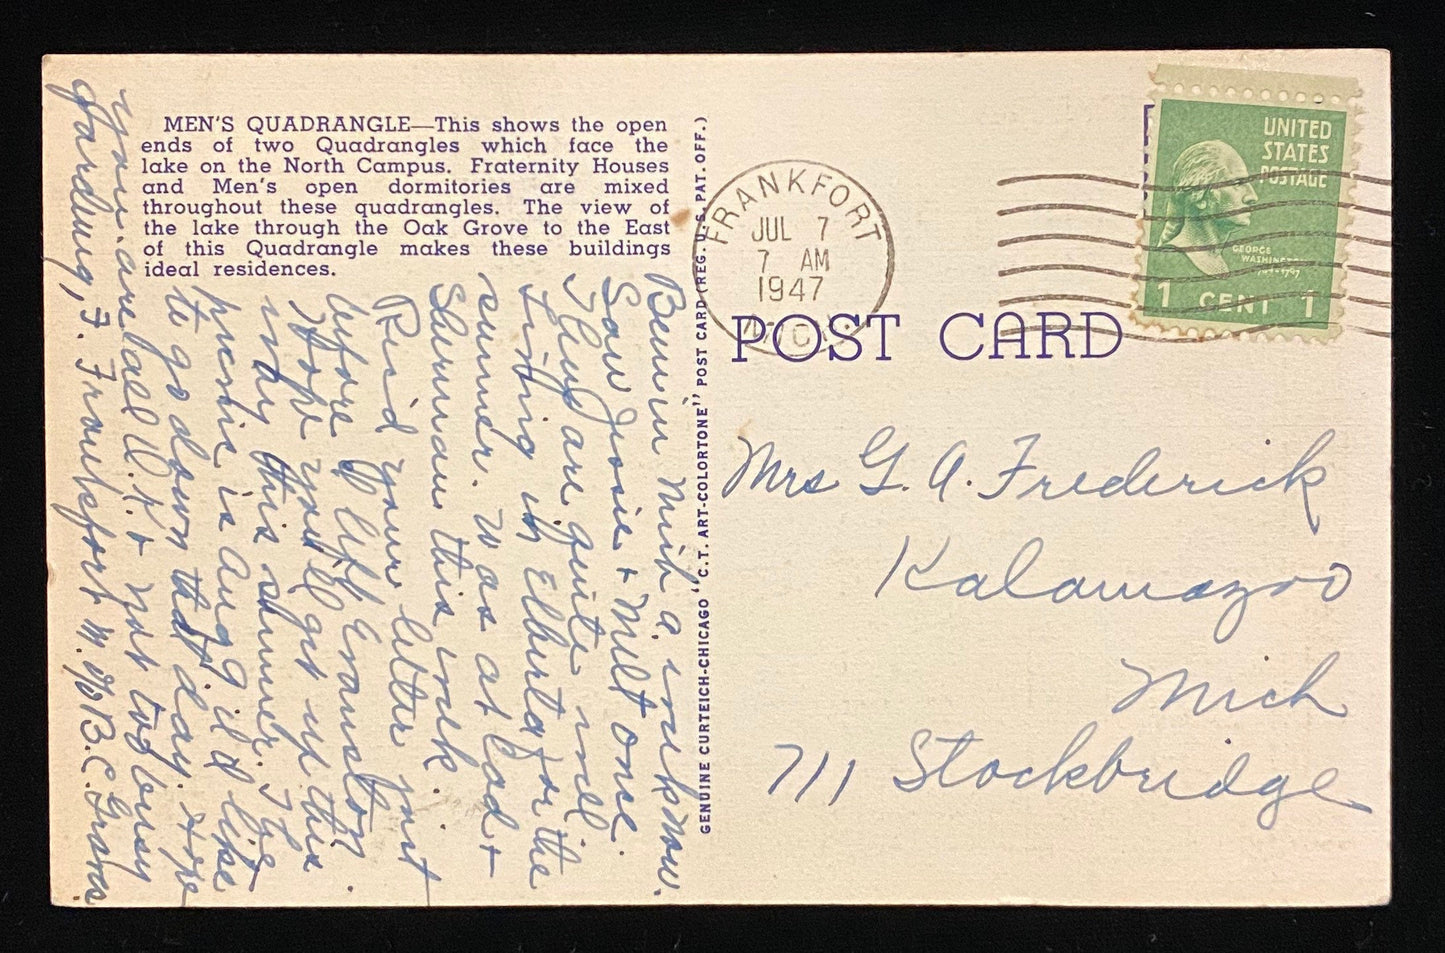 MEN'S QUADRANGLE—This shows the open
ends of two Quadrangles which face the
lake on the North Campus. Fraternity Houses
and Men's open dormitories are mixed
throughout these quadrangles. The view of
the lake through the Oak Grove to the East
of this Quadrangle makes these buildings
ideal residences.
Been in Mich a week now.
Saw Josie + Milt once.
They are quite well
Living in Elberta for the
summer. Was at Cad +
Sherman this week.
Rec'd your letter just
before I left Evanston
Hope you'll get up this
way this summer. The
picnic is Aug
to go down that day. Hope
you are all O.K. + not too busy
Frankfort M.
GENUINE CURTEICH-CHICAGO "C.T. ART-COLORTONE" POST CARD (REG. U.S. PAT. OFF.)
FRANKFORT
JUL 7
7 AM
1947
MICH.
UNITED
STATES
POSTAGE
GEORGE
WASHINGTON
1 CENT 1
POST CARD
Mrs G. A. Frederick
Kalamazoo
Mich
711 Stockbridge